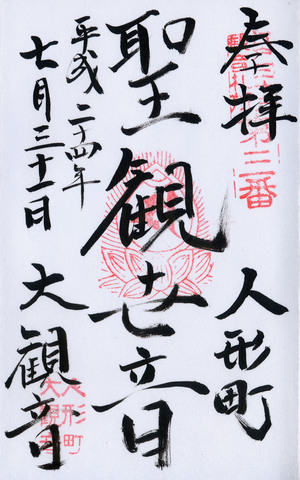 奉拝
人形町
聖観世音
平成二十四年
七月三十一日
大観音
三番
人形町
大観音